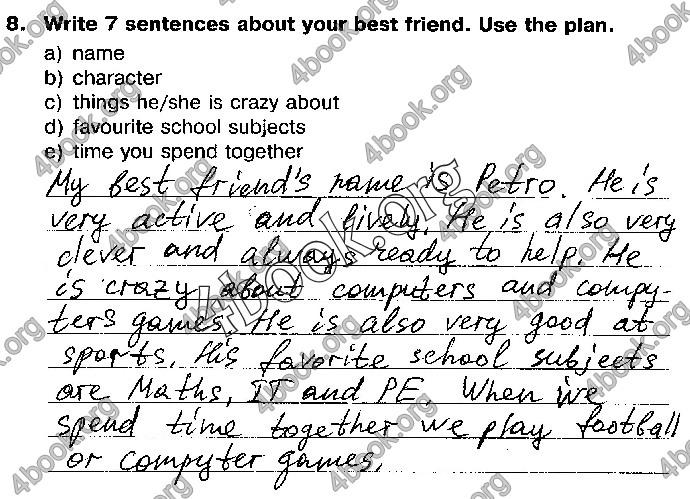 8. Write 7 sentences about your best friend. Use the plan.
a) name
b) character
c) things he/she is crazy about
d) favourite school subjects
e) time you spend together
My best friend's name is Petro. He is
very active and lively. He is also very
clever and always ready to help. He
is crazy about computers and compy-
ters games. He is also very good at
sports. His favorite school subjects
are Maths, IT and PE. When we
spend time together we play football
or compyter games.
4book.org
4book.org
4book.org
4book.org
4book.org
4book.org
4book.org
4book.org
4book.org